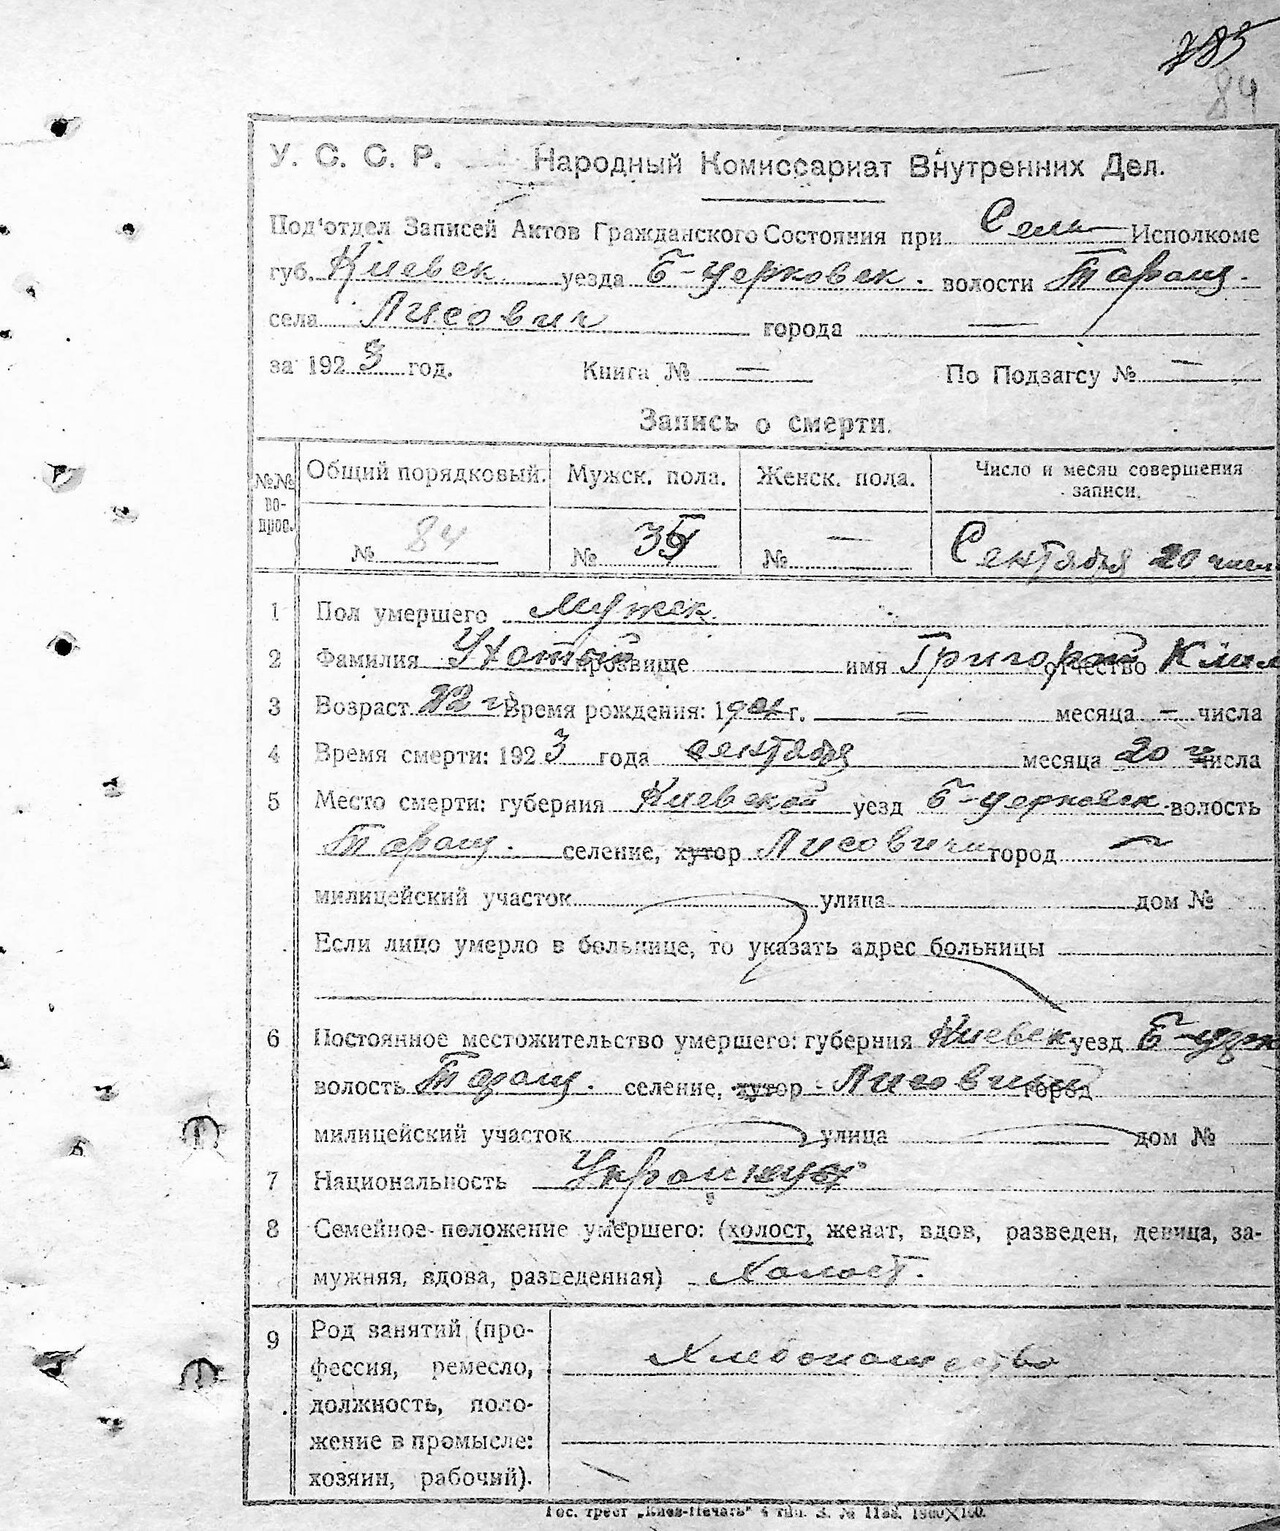 785
84
У. С. С. Р. Народный Комиссариат Внутренних Дел.
Под'отдел Записей Актов Гражданского Состояния при Сель Исполкоме
губ. Киевск уезда Б-церковск. волости Таращ.
села Лисович города —
за 1923 год. Книга № — По Подзагсу № —
Запись о смерти.
№№ во-прос. Общий порядковый. Мужск. пола. Женск. пола. Число и месяц совершения записи.
№ 84 № № — Сентября 20 числ
1 Пол умершего Мужск.
2 Фамилия прозвище имя Григорий отчество Клим
3 Возраст 22 г Время рождения: 1901 г. — месяца — числа
4 Время смерти: 1923 года сентября месяца 20 числа
5 Место смерти: губерния Киевской уезд Б-церковск. волость
Таращ. селение, хутор Лисовичи город —
милицейский участок улица дом №
Если лицо умерло в больнице, то указать адрес больницы
6 Постоянное местожительство умершего: губерния Киевск уезд Б-церк
волость Таращ. селение, хутор Лисовичи город
милицейский участок улица дом №
7 Национальность
8 Семейное положение умершего: (холост, женат, вдов, разведен, девица, за-
мужняя, вдова, разведенная) Холост.
9 Род занятий (про-
фессия, ремесло, Хлебопашество
должность, поло-
жение в промысле:
хозяин, рабочий).
Гос. трест „Киев-Печать" 4 тип. З. № 1100×100.